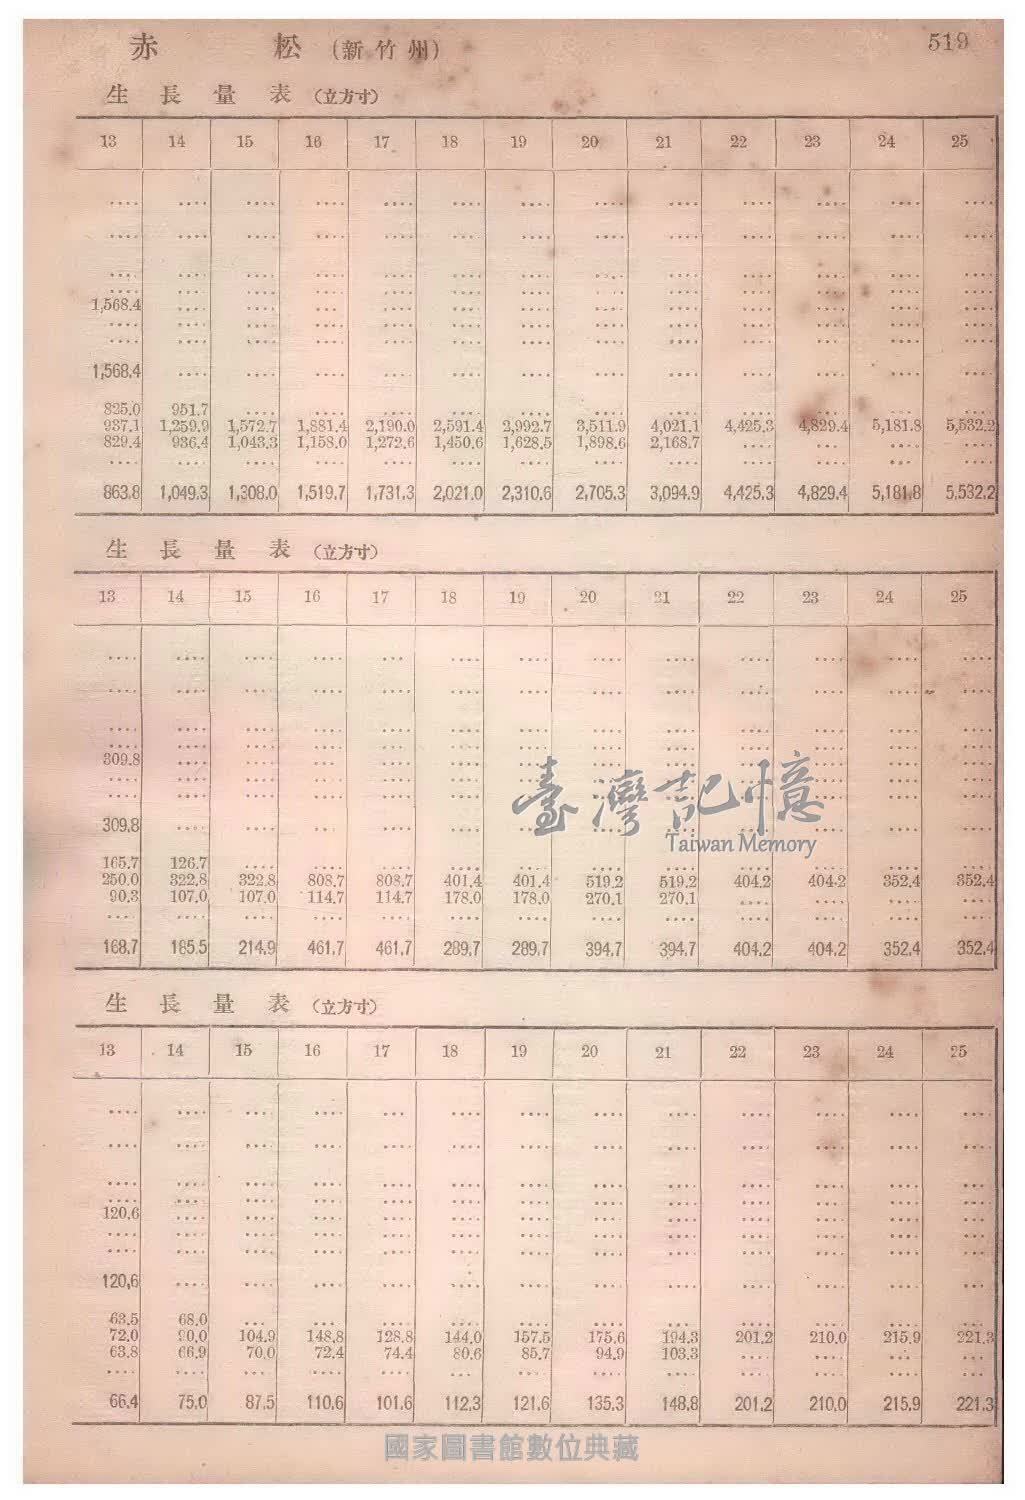 赤 松 (新竹州) 519
生長量表 (立方寸)
13 14 15 16 17 18 19 20 21 22 23 24 25
.... .... .... .... .... .... .... .... .... .... .... .... ....
.... .... .... .... .... .... .... .... .... .... .... .... ....
.... .... .... .... .... .... .... .... .... .... .... .... ....
.... .... .... .... .... .... .... .... .... .... .... .... ....
1,568.4 .... .... .... .... .... .... .... .... .... .... .... ....
.... .... .... .... .... .... .... .... .... .... .... .... ....
.... .... .... .... .... .... .... .... .... .... .... .... ....
1,568.4 .... .... .... .... .... .... .... .... .... .... .... ....
825.0 951.7 .... .... .... .... .... .... .... .... .... .... ....
937.1 1,259.9 1,572.7 1,881.4 2,190.0 2,591.4 2,992.7 3,511.9 4,021.1 4,425.3 4,829.4 5,181.8 5,532.2
829.4 936.4 1,043.3 1,158.0 1,272.6 1,450.6 1,628.5 1,898.6 2,168.7 .... .... .... ....
.... .... .... .... .... .... .... .... .... .... .... .... ....
863.8 1,049.3 1,308.0 1,519.7 1,731.3 2,021.0 2,310.6 2,705.3 3,094.9 4,425.3 4,829.4 5,181.8 5,532.2
生長量表 (立方寸)
13 14 15 16 17 18 19 20 21 22 23 24 25
.... .... .... .... .... .... .... .... .... .... .... .... ....
.... .... .... .... .... .... .... .... .... .... .... .... ....
.... .... .... .... .... .... .... .... .... .... .... .... ....
.... .... .... .... .... .... .... .... .... .... .... .... ....
309.8 .... .... .... .... .... .... .... .... .... .... .... ....
.... .... .... .... .... .... .... .... .... .... .... .... ....
.... .... .... .... .... .... .... .... .... .... .... .... ....
臺灣記憶
309.8 .... .... .... .... .... .... .... .... .... .... .... ....
Taiwan Memory
165.7 126.7 .... .... .... .... .... .... .... .... .... .... ....
250.0 322.8 322.8 808.7 808.7 401.4 401.4 519.2 519.2 404.2 404.2 352.4 352.4
90.3 107.0 107.0 114.7 114.7 178.0 178.0 270.1 270.1 .... .... .... ....
.... .... .... .... .... .... .... .... .... .... .... .... ....
168.7 185.5 214.9 461.7 461.7 289.7 289.7 394.7 394.7 404.2 404.2 352.4 352.4
生長量表 (立方寸)
13 14 15 16 17 18 19 20 21 22 23 24 25
.... .... .... .... .... .... .... .... .... .... .... .... ....
.... .... .... .... .... .... .... .... .... .... .... .... ....
.... .... .... .... .... .... .... .... .... .... .... .... ....
.... .... .... .... .... .... .... .... .... .... .... .... ....
120.6 .... .... .... .... .... .... .... .... .... .... .... ....
.... .... .... .... .... .... .... .... .... .... .... .... ....
.... .... .... .... .... .... .... .... .... .... .... .... ....
120.6 .... .... .... .... .... .... .... .... .... .... .... ....
63.5 68.0 .... .... .... .... .... .... .... .... .... .... ....
72.0 90.0 104.9 148.8 128.8 144.0 157.5 175.6 194.3 201.2 210.0 215.9 221.3
63.8 66.9 70.0 72.4 74.4 80.6 85.7 94.9 103.3 .... .... .... ....
.... .... .... .... .... .... .... .... .... .... .... .... ....
66.4 75.0 87.5 110.6 101.6 112.3 121.6 135.3 148.8 201.2 210.0 215.9 221.3
國家圖書館數位典藏